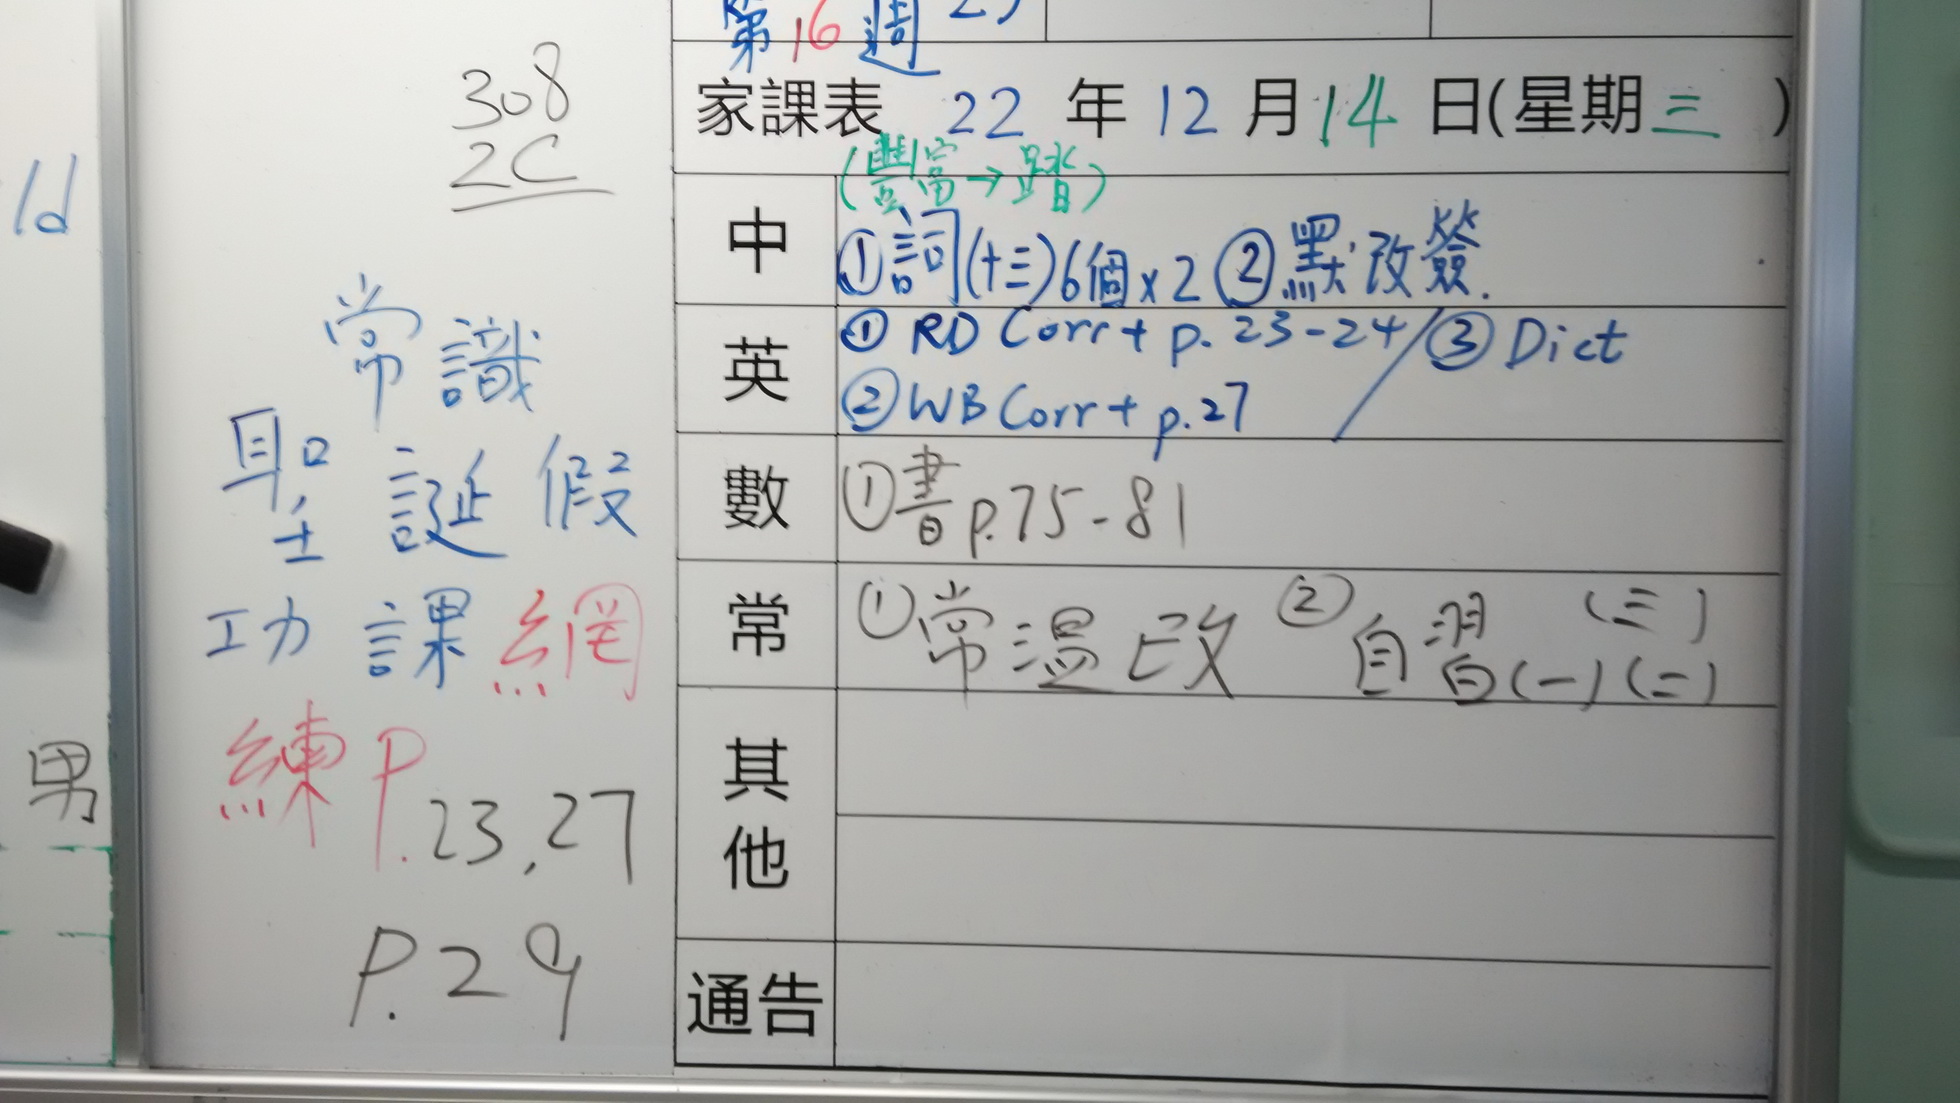 308
2C
常識
聖誕假
功課網
練P.23,27
P.29
1d
男
第16週
家課表 22年12月14日(星期三)
(豐富→踏)
中
①詞(十三)6個x2 ②默改簽.
英
① RD Corr+ p. 23-24/③ Dict
② WB Corr+ p.27
數
①書p.75-81
常
①常溫改 ②自習(一)(二)
(三)
其他
通告